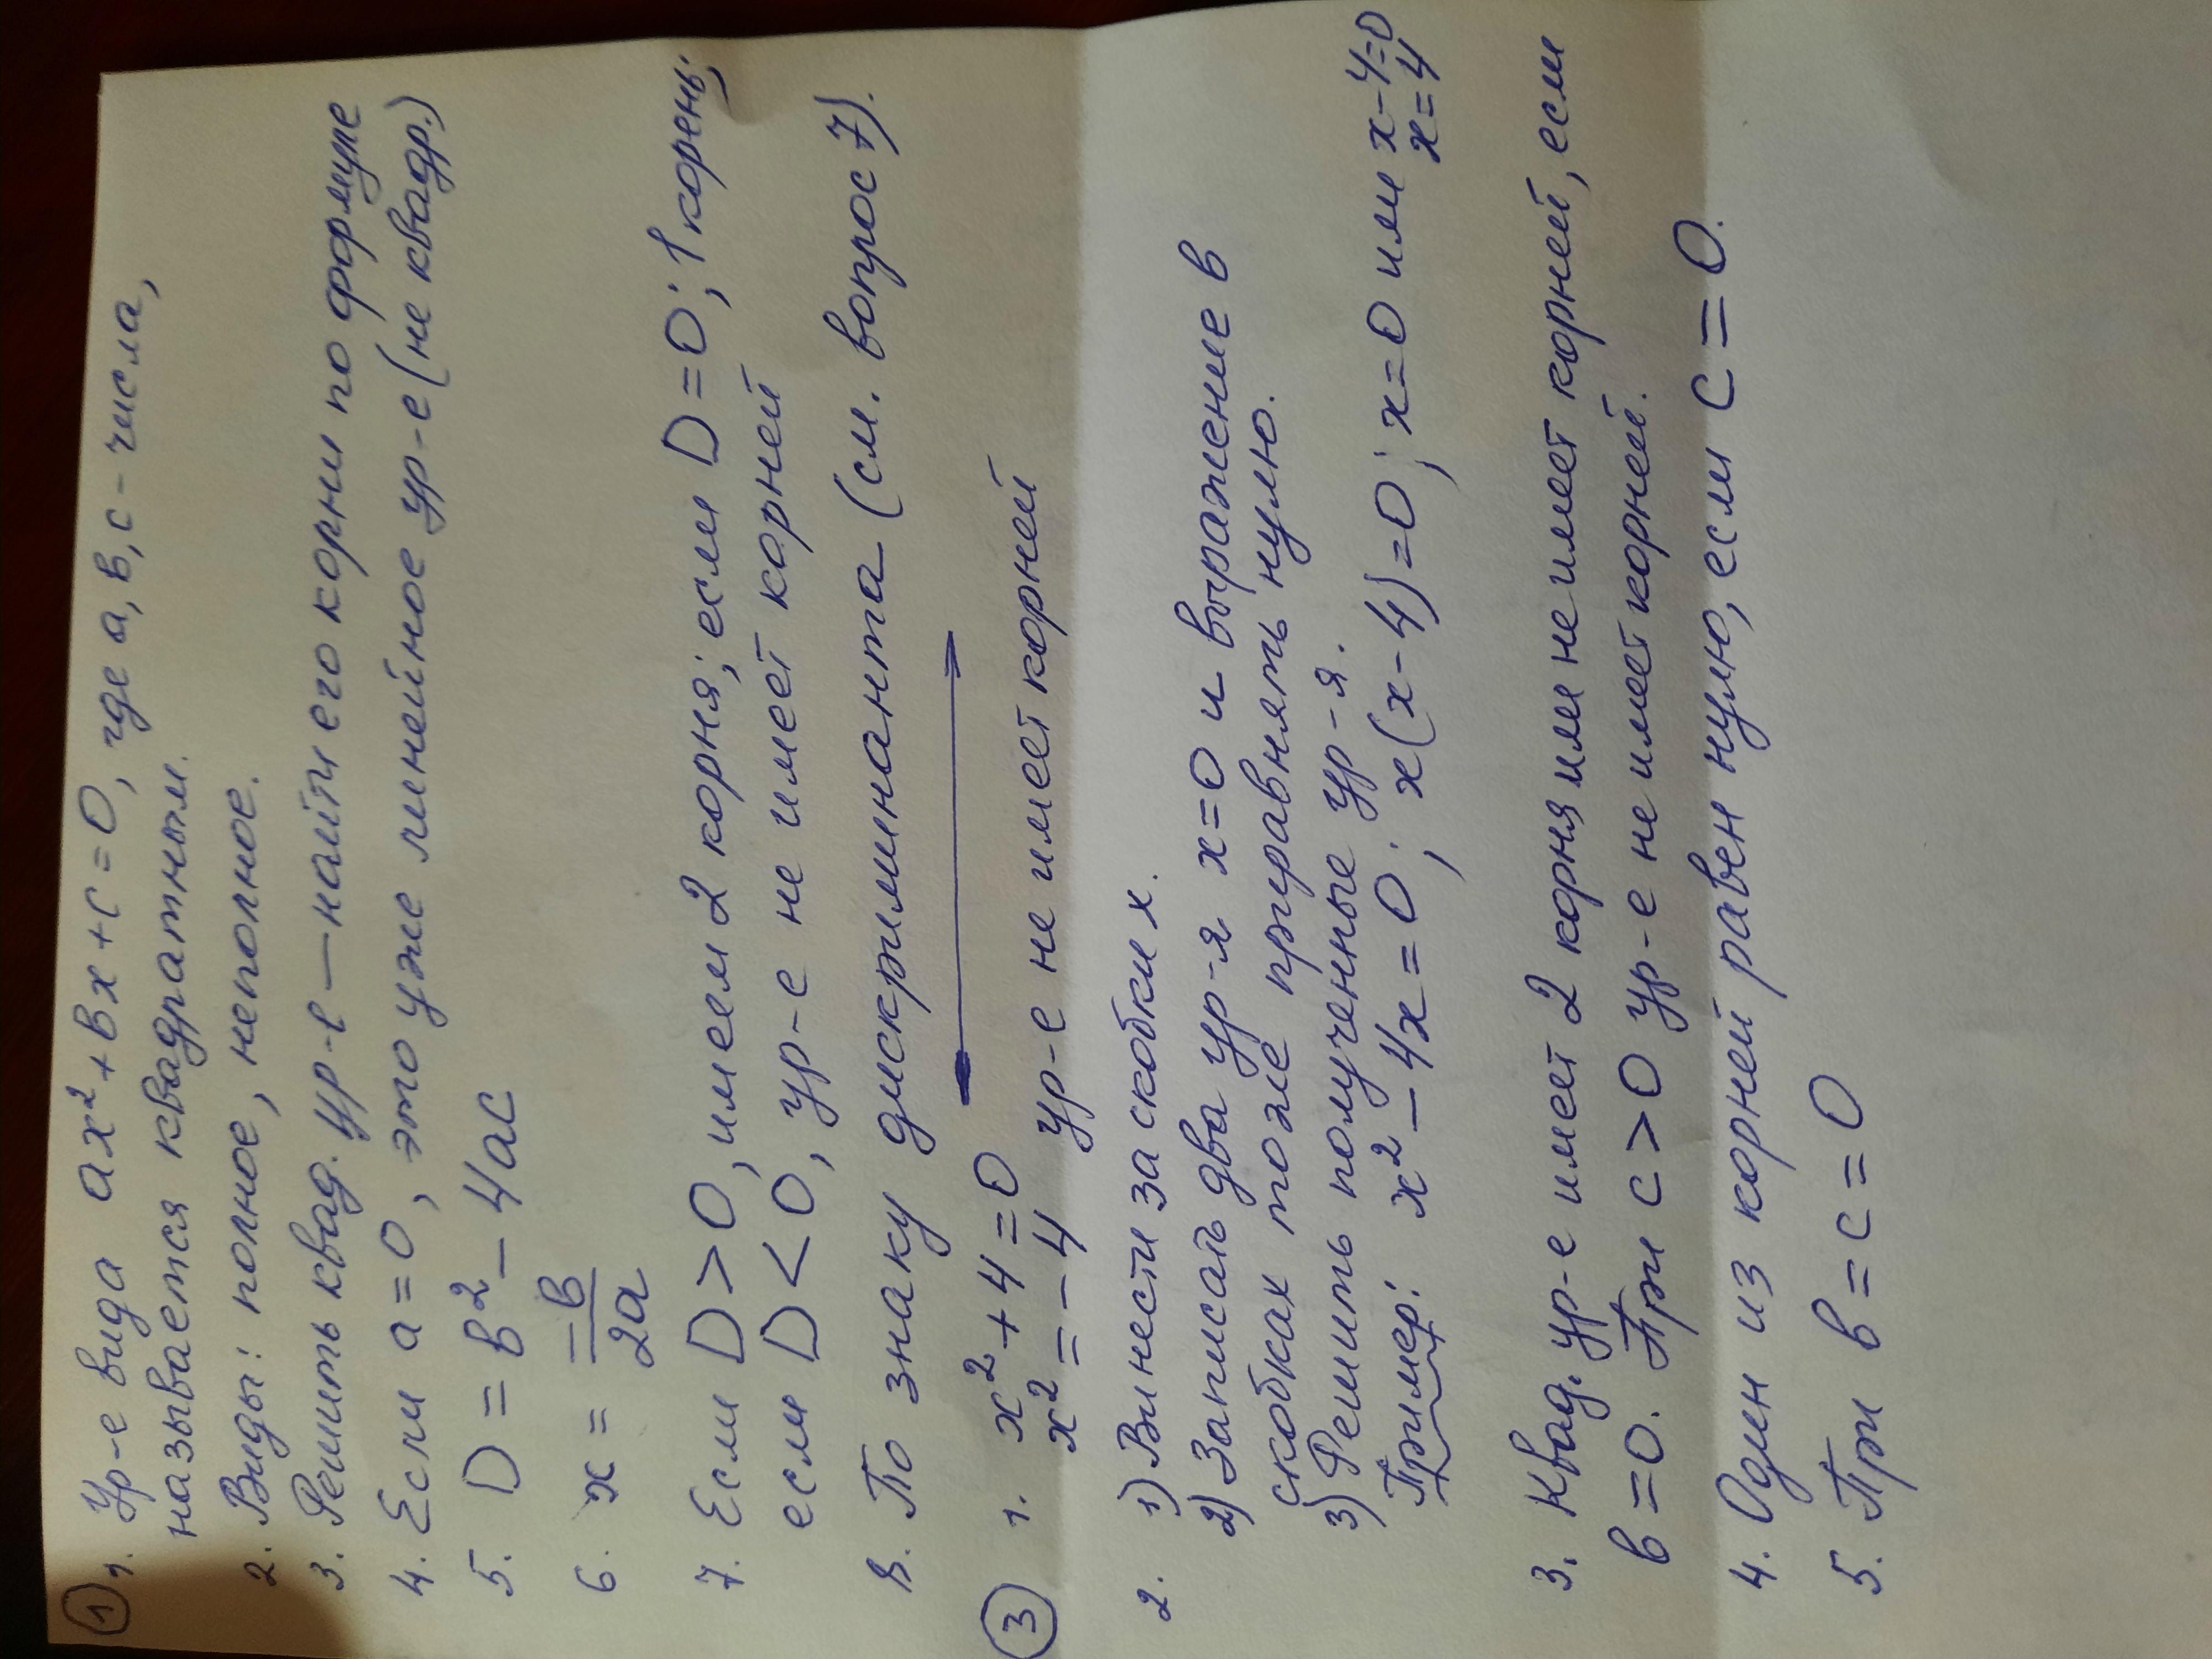 ① 1. Ур-е вида ax² + вx + c = 0, где a, в, c - числа,
называется квадратным.
2. Виды: полное, неполное.
3. Решить квад. ур-е — найти его корни по формуле
4. Если a = 0, это уже линейное ур-е (не квадр.)
5. D = в² - 4ac
6. x = -в/2a
7. Если D > 0, имеем 2 корня; если D = 0; 1 корень;
если D < 0, ур-е не имеет корней
8. По знаку дискриминанта (см. вопрос 7).
③ 1. x² + 4 = 0
x² = -4 ур-е не имеет корней
2. 1) Вынести за скобки x.
2) Записать два ур-я x = 0 и выражение в
скобках тоже приравнять нулю.
3) Решить полученные ур-я.
Пример: x² - 4x = 0; x(x - 4) = 0; x = 0 или x - 4 = 0
x = 4
3. Квад. ур-е имеет 2 корня или не имеет корней, если
в = 0. При c > 0 ур-е не имеет корней.
4. Один из корней равен нулю, если c = 0.
5. При в = c = 0